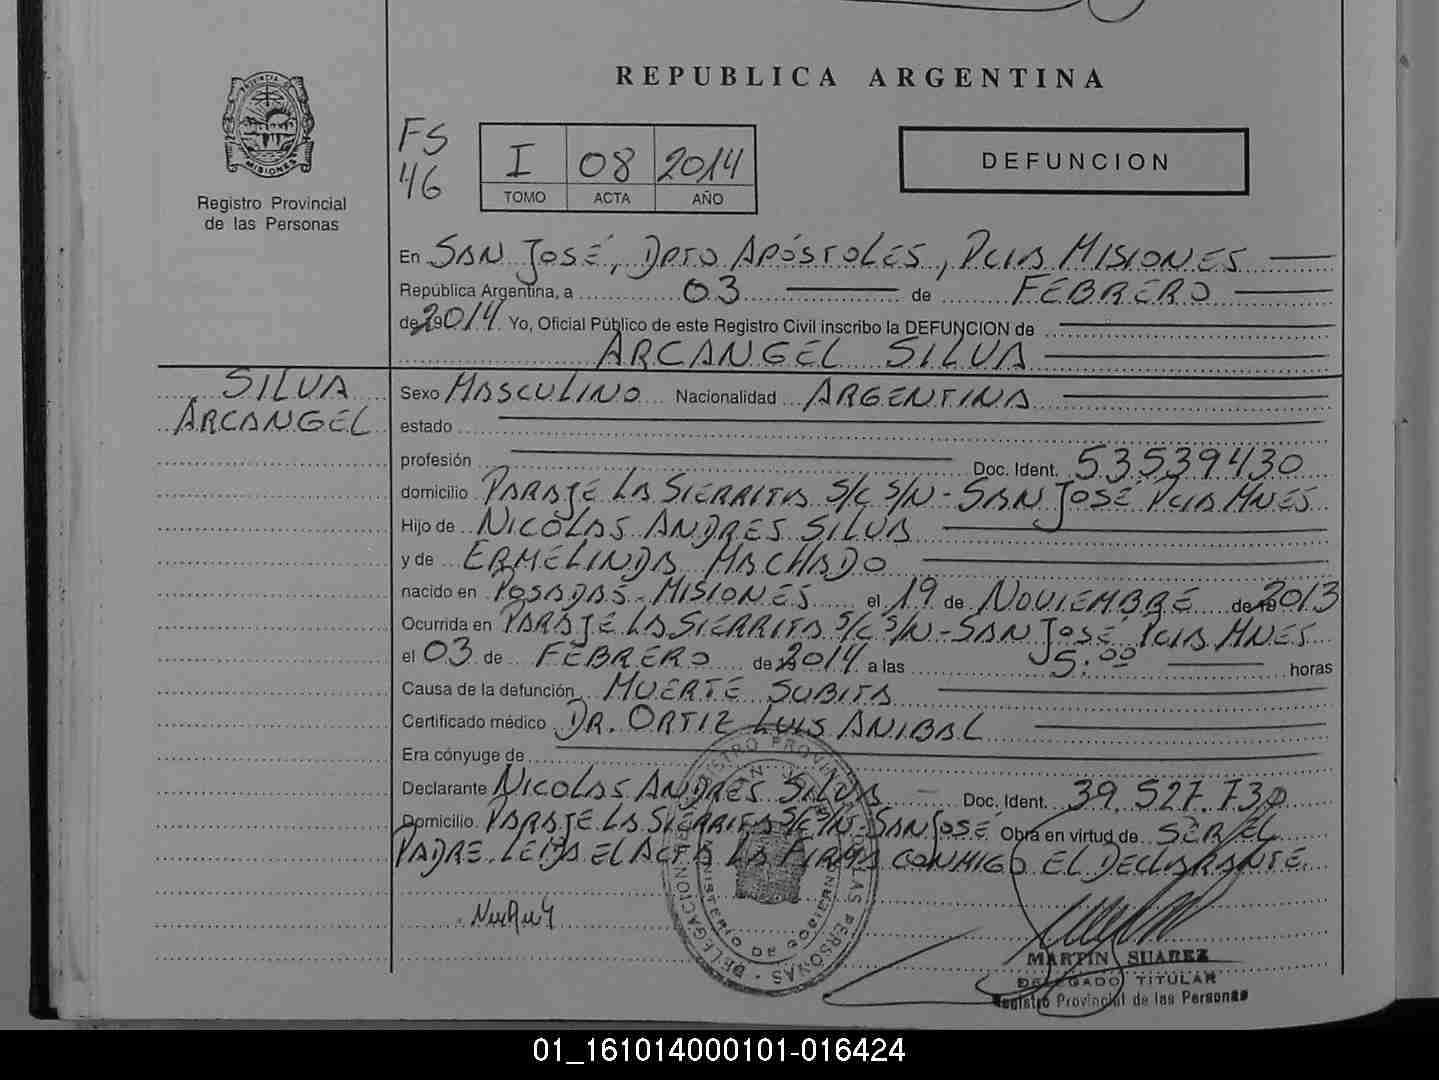 REPUBLICA ARGENTINA
PROVINCIA DE MISIONES
Registro Provincial
de las Personas
FS
46
I 08 2014
TOMO ACTA AÑO
DEFUNCION
En SAN JOSÉ, DPTO APÓSTOLES, PCIA MISIONES
República Argentina, a 03 de FEBRERO
de 2014 Yo, Oficial Público de este Registro Civil inscribo la DEFUNCION de
ARCANGEL SILVA
SILVA
ARCANGEL
Sexo MASCULINO Nacionalidad ARGENTINA
estado
profesión Doc. Ident. 53539430
domicilio PARAJE LA SIERRITA S/C S/N - SAN JOSÉ PCIA MNES
Hijo de NICOLAS ANDRES SILVA
y de ERMELINDA MACHADO
nacido en POSADAS - MISIONES el 19 de NOVIEMBRE de 2013
Ocurrida en PARAJE LA SIERRITA S/C S/N - SAN JOSÉ PCIA MNES
el 03 de FEBRERO de 2014 a las 5:00 horas
Causa de la defunción MUERTE SUBITA
Certificado médico DR. ORTIZ LUIS ANIBAL
Era cónyuge de
Declarante NICOLAS ANDRES SILVA Doc. Ident. 39.527.730
Domicilio PARAJE LA SIERRITA S/C S/N - SAN JOSÉ Obra en virtud de SER EL
PADRE LEIDA EL ACTA LA FIRMA CONMIGO EL DECLARANTE
REGISTRO PROVINCIAL DE LAS PERSONAS · DELEGACION
MINISTERIO DE GOBIERNO
MARTIN SUAREZ
DELEGADO TITULAR
Registro Provincial de las Personas
01_161014000101-016424